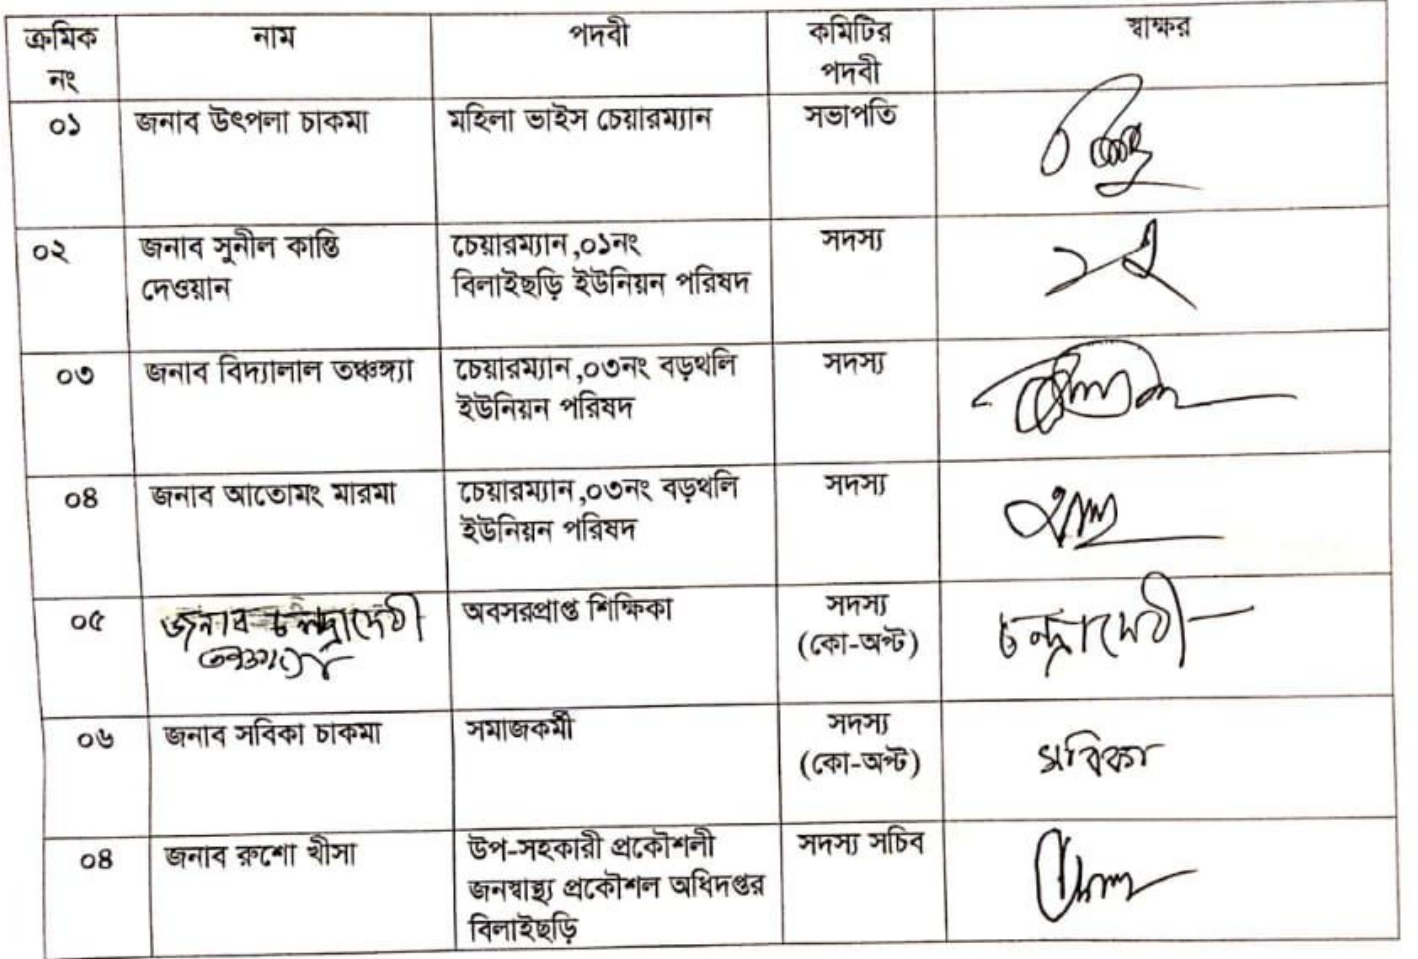 ক্রমিক নং নাম পদবী কমিটির পদবী স্বাক্ষর
০১ জনাব উৎপলা চাকমা মহিলা ভাইস চেয়ারম্যান সভাপতি
০২ জনাব সুনীল কান্তি দেওয়ান চেয়ারম্যান,০১নং বিলাইছড়ি ইউনিয়ন পরিষদ সদস্য
০৩ জনাব বিদ্যালাল তঞ্চঙ্গ্যা চেয়ারম্যান,০৩নং বড়থলি ইউনিয়ন পরিষদ সদস্য
০৪ জনাব আতোমং মারমা চেয়ারম্যান,০৩নং বড়থলি ইউনিয়ন পরিষদ সদস্য
০৫ জনাব চন্দ্রাদেবী অবসরপ্রাপ্ত শিক্ষিকা সদস্য (কো-অপ্ট) চন্দ্রাদেবী
০৬ জনাব সবিকা চাকমা সমাজকর্মী সদস্য (কো-অপ্ট) সবিকা
০৪ জনাব রুশো খীসা উপ-সহকারী প্রকৌশলী জনস্বাস্থ্য প্রকৌশল অধিদপ্তর বিলাইছড়ি সদস্য সচিব